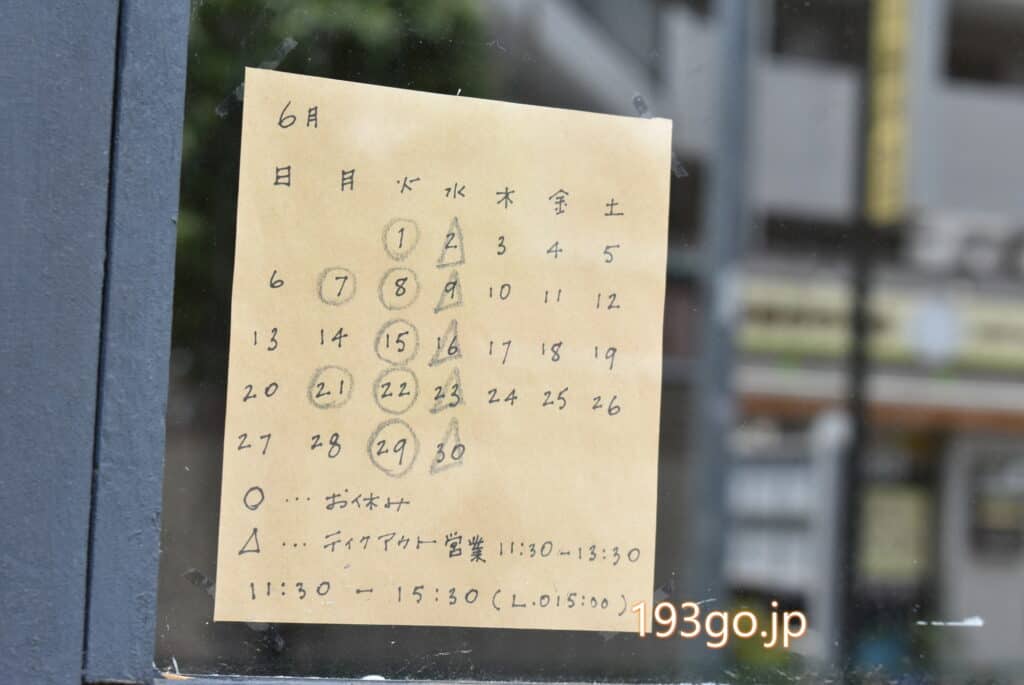 6月
日 月 火 水 木 金 土
1 2 3 4 5
6 7 8 9 10 11 12
13 14 15 16 17 18 19
20 21 22 23 24 25 26
27 28 29 30
○ … お休み
△ … テイクアウト営業 11:30-13:30
11:30 - 15:30 (L.O15:00)
193go.jp